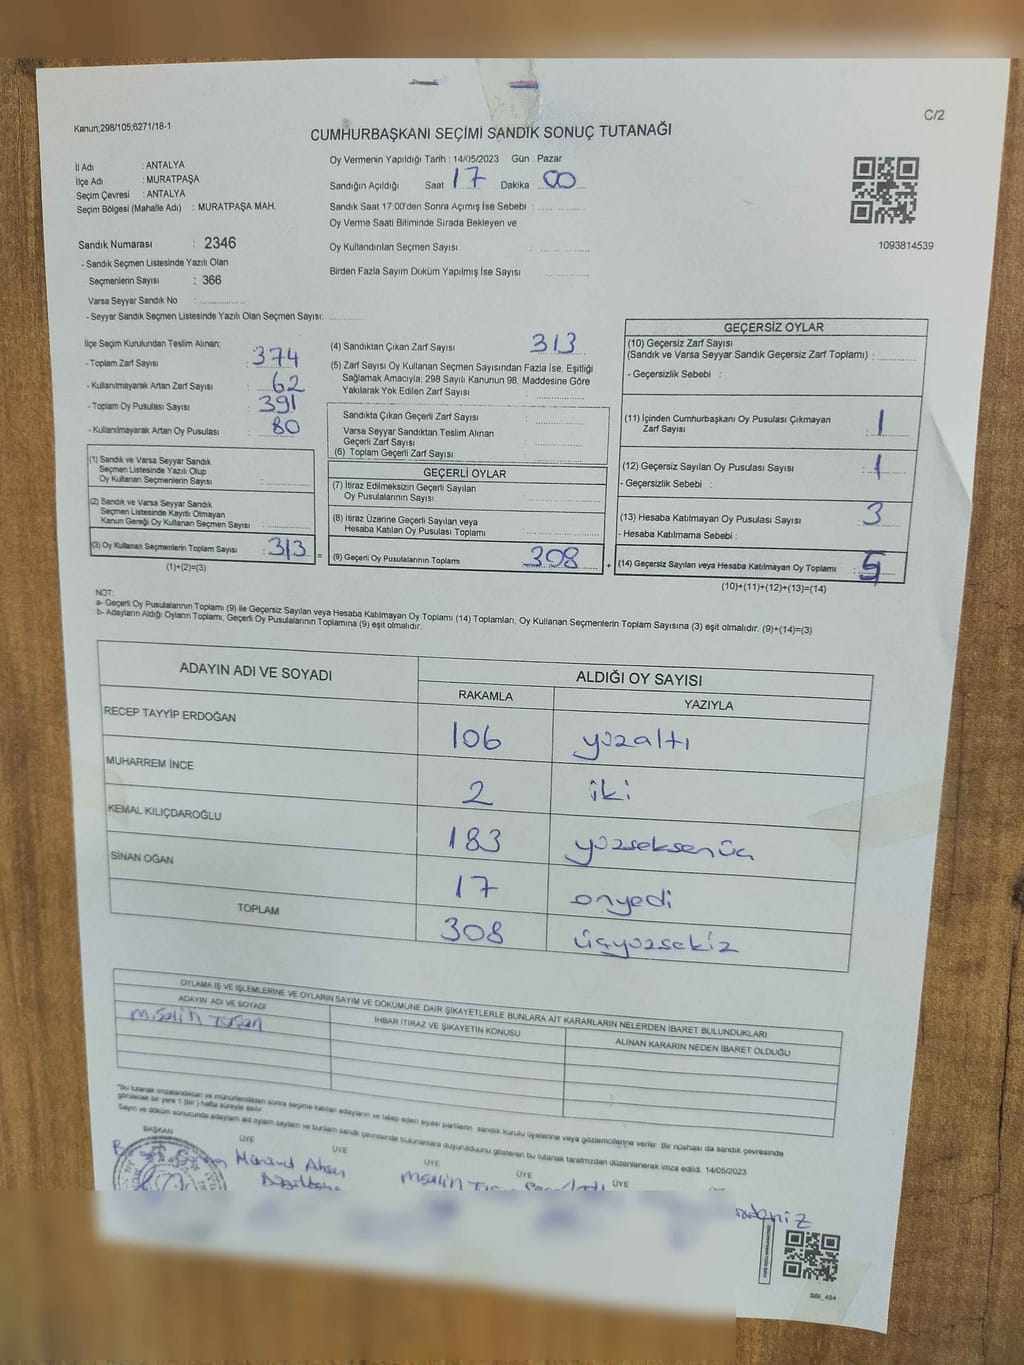 Kanun;298/105;6271/18-1
C/2
CUMHURBAŞKANI SEÇİMİ SANDIK SONUÇ TUTANAĞI
İl Adı : ANTALYA
İlçe Adı : MURATPAŞA
Seçim Çevresi : ANTALYA
Seçim Bölgesi (Mahalle Adı) : MURATPAŞA MAH.
Oy Vermenin Yapıldığı Tarih : 14/05/2023 Gün : Pazar
Sandığın Açıldığı Saat 17 Dakika : 00
Sandık Saat 17:00'den Sonra Açımış İse Sebebi :
Oy Verme Saati Bitiminde Sırada Bekleyen ve
Oy Kullandırılan Seçmen Sayısı
Birden Fazla Sayım Döküm Yapılmış İse Sayısı
1093814539
Sandık Numarası : 2346
- Sandık Seçmen Listesinde Yazılı Olan
Seçmenlerin Sayısı : 366
Varsa Seyyar Sandık No :
- Seyyar Sandık Seçmen Listesinde Yazılı Olan Seçmen Sayısı:
İlçe Seçim Kurulundan Teslim Alınan;
- Toplam Zarf Sayısı : 374
- Kullanılmayarak Artan Zarf Sayısı : 62
- Toplam Oy Pusulası Sayısı : 391
- Kullanılmayarak Artan Oy Pusulası : 80
(1) Sandık ve Varsa Seyyar Sandık
Seçmen Listesinde Yazılı Olup
Oy Kullanan Seçmenlerin Sayısı :
(2) Sandık ve Varsa Seyyar Sandık
Seçmen Listesinde Kayıtlı Olmayan
Kanun Gereği Oy Kullanan Seçmen Sayısı :
(3) Oy Kullanan Seçmenlerin Toplam Sayısı : 313
(1)+(2)=(3)
=
(4) Sandıktan Çıkan Zarf Sayısı : 313
(5) Zarf Sayısı Oy Kullanan Seçmen Sayısından Fazla İse, Eşitliği
Sağlamak Amacıyla; 298 Sayılı Kanunun 98. Maddesine Göre
Yakılarak Yok Edilen Zarf Sayısı :
Sandıkta Çıkan Geçerli Zarf Sayısı :
Varsa Seyyar Sandıktan Teslim Alınan
Geçerli Zarf Sayısı :
(6) Toplam Geçerli Zarf Sayısı :
GEÇERLİ OYLAR
(7) İtiraz Edilmeksizin Geçerli Sayılan
Oy Pusulalarının Sayısı :
(8) İtiraz Üzerine Geçerli Sayılan veya
Hesaba Katılan Oy Pusulası Toplamı :
(9) Geçerli Oy Pusulalarının Toplamı : 308
+
GEÇERSİZ OYLAR
(10) Geçersiz Zarf Sayısı
(Sandık ve Varsa Seyyar Sandık Geçersiz Zarf Toplamı) :
- Geçersizlik Sebebi :
(11) İçinden Cumhurbaşkanı Oy Pusulası Çıkmayan
Zarf Sayısı : 1
(12) Geçersiz Sayılan Oy Pusulası Sayısı : 1
- Geçersizlik Sebebi :
(13) Hesaba Katılmayan Oy Pusulası Sayısı : 3
- Hesaba Katılmama Sebebi :
(14) Geçersiz Sayılan veya Hesaba Katılmayan Oy Toplamı : 5
(10)+(11)+(12)+(13)=(14)
NOT:
a- Geçerli Oy Pusulalarının Toplamı (9) ile Geçersiz Sayılan veya Hesaba Katılmayan Oy Toplamı (14) Toplamları, Oy Kullanan Seçmenlerin Toplam Sayısına (3) eşit olmalıdır. (9)+(14)=(3)
b- Adayların Aldığı Oyların Toplamı, Geçerli Oy Pusulalarının Toplamına (9) eşit olmalıdır.
ADAYIN ADI VE SOYADI ALDIĞI OY SAYISI
RAKAMLA YAZIYLA
RECEP TAYYİP ERDOĞAN 106 yüzaltı
MUHARREM İNCE 2 iki
KEMAL KILIÇDAROĞLU 183 yüzseksenüç
SİNAN OĞAN 17 onyedi
TOPLAM 308 üçyüzsekiz
OYLAMA İŞ VE İŞLEMLERİNE VE OYLARIN SAYIM VE DÖKÜMÜNE DAİR ŞİKAYETLERLE BUNLARA AİT KARARLARIN NELERDEN İBARET BULUNDUKLARI
ADAYIN ADI VE SOYADI İHBAR İTİRAZ VE ŞİKAYETİN KONUSU ALINAN KARARIN NEDEN İBARET OLDUĞU
M.Salih
*Bu tutanak imzalandıktan ve mühürlendikten sonra seçime katılan adayların ve talep eden siyasi partilerin sandık kurulu üyelerine veya gözlemcilerine verilir. Bir nüshası da sandık çevresinde
görülecek bir yere 1 (bir) hafta süreyle asılır.
Sayım ve döküm sonucunda adayların aldı oyların sayım ve bunların sandık çevresinde bulunanlara duyurulduunu gösteren bu tutanak tarafımızdan düzenlenerek imza edildi. 14/05/2023
BAŞKAN ÜYE ÜYE ÜYE ÜYE ÜYE
SBI_494